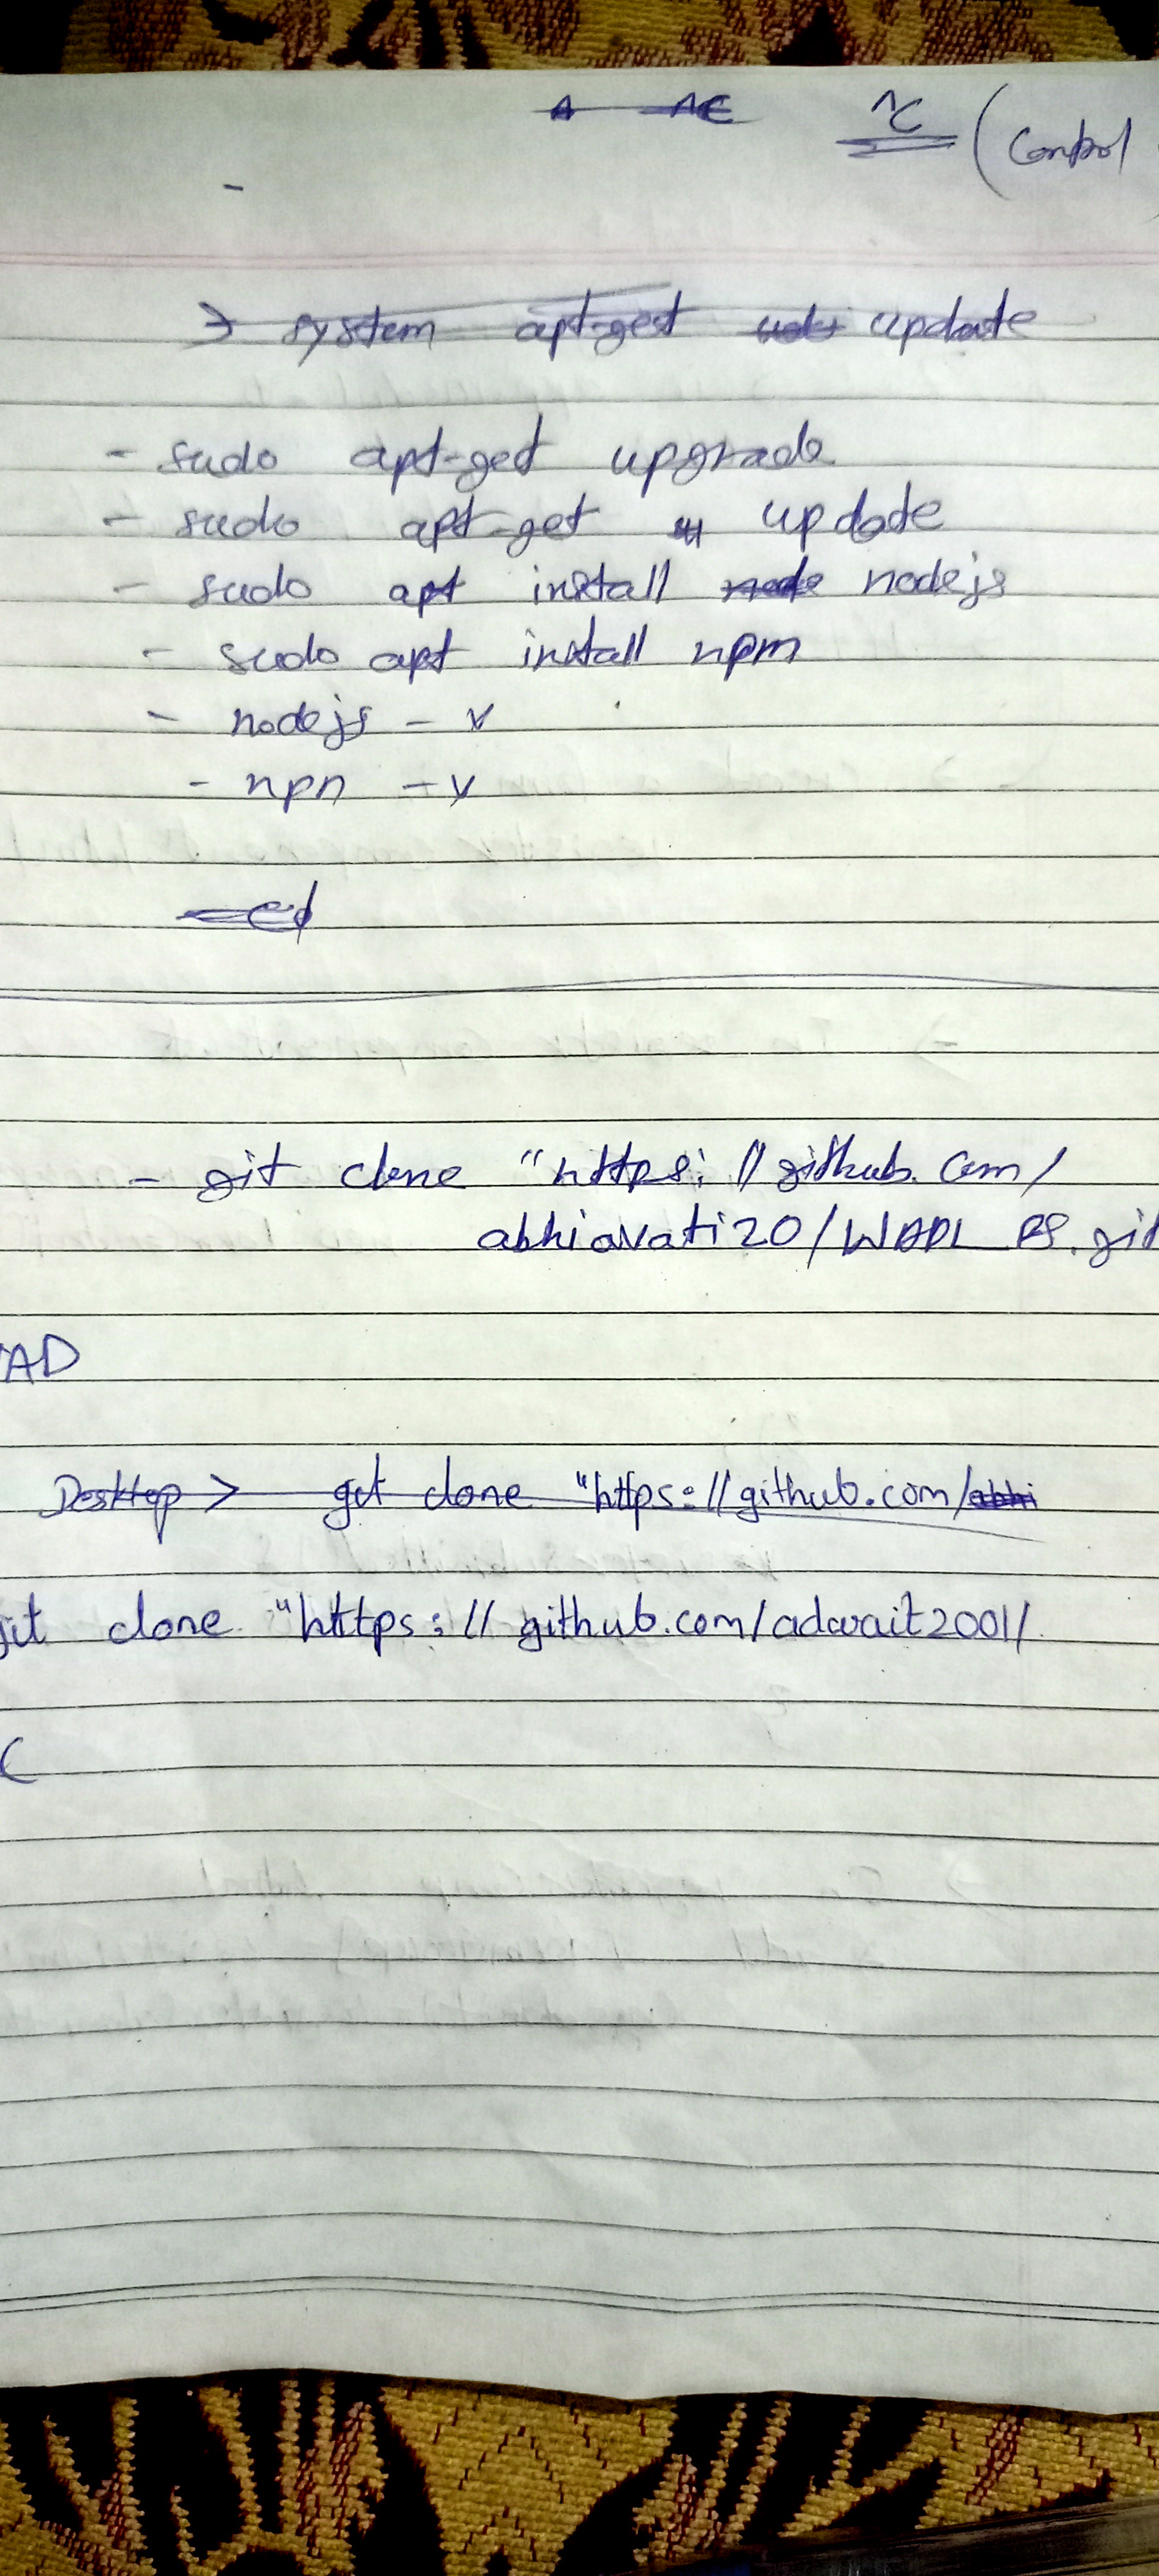 ^C (Control
→ system apt-gest update
- sudo apt-get upgrade
- sudo apt-get update
- sudo apt install node nodejs
- sudo apt install npm
- nodejs - v
- npn - v
cd
- git clone "https://github.com/
abhiavati20/WADL_PS.git
AD
Desktop > get clone "https://github.com/abhi
git clone "https://github.com/adwait2001/
C